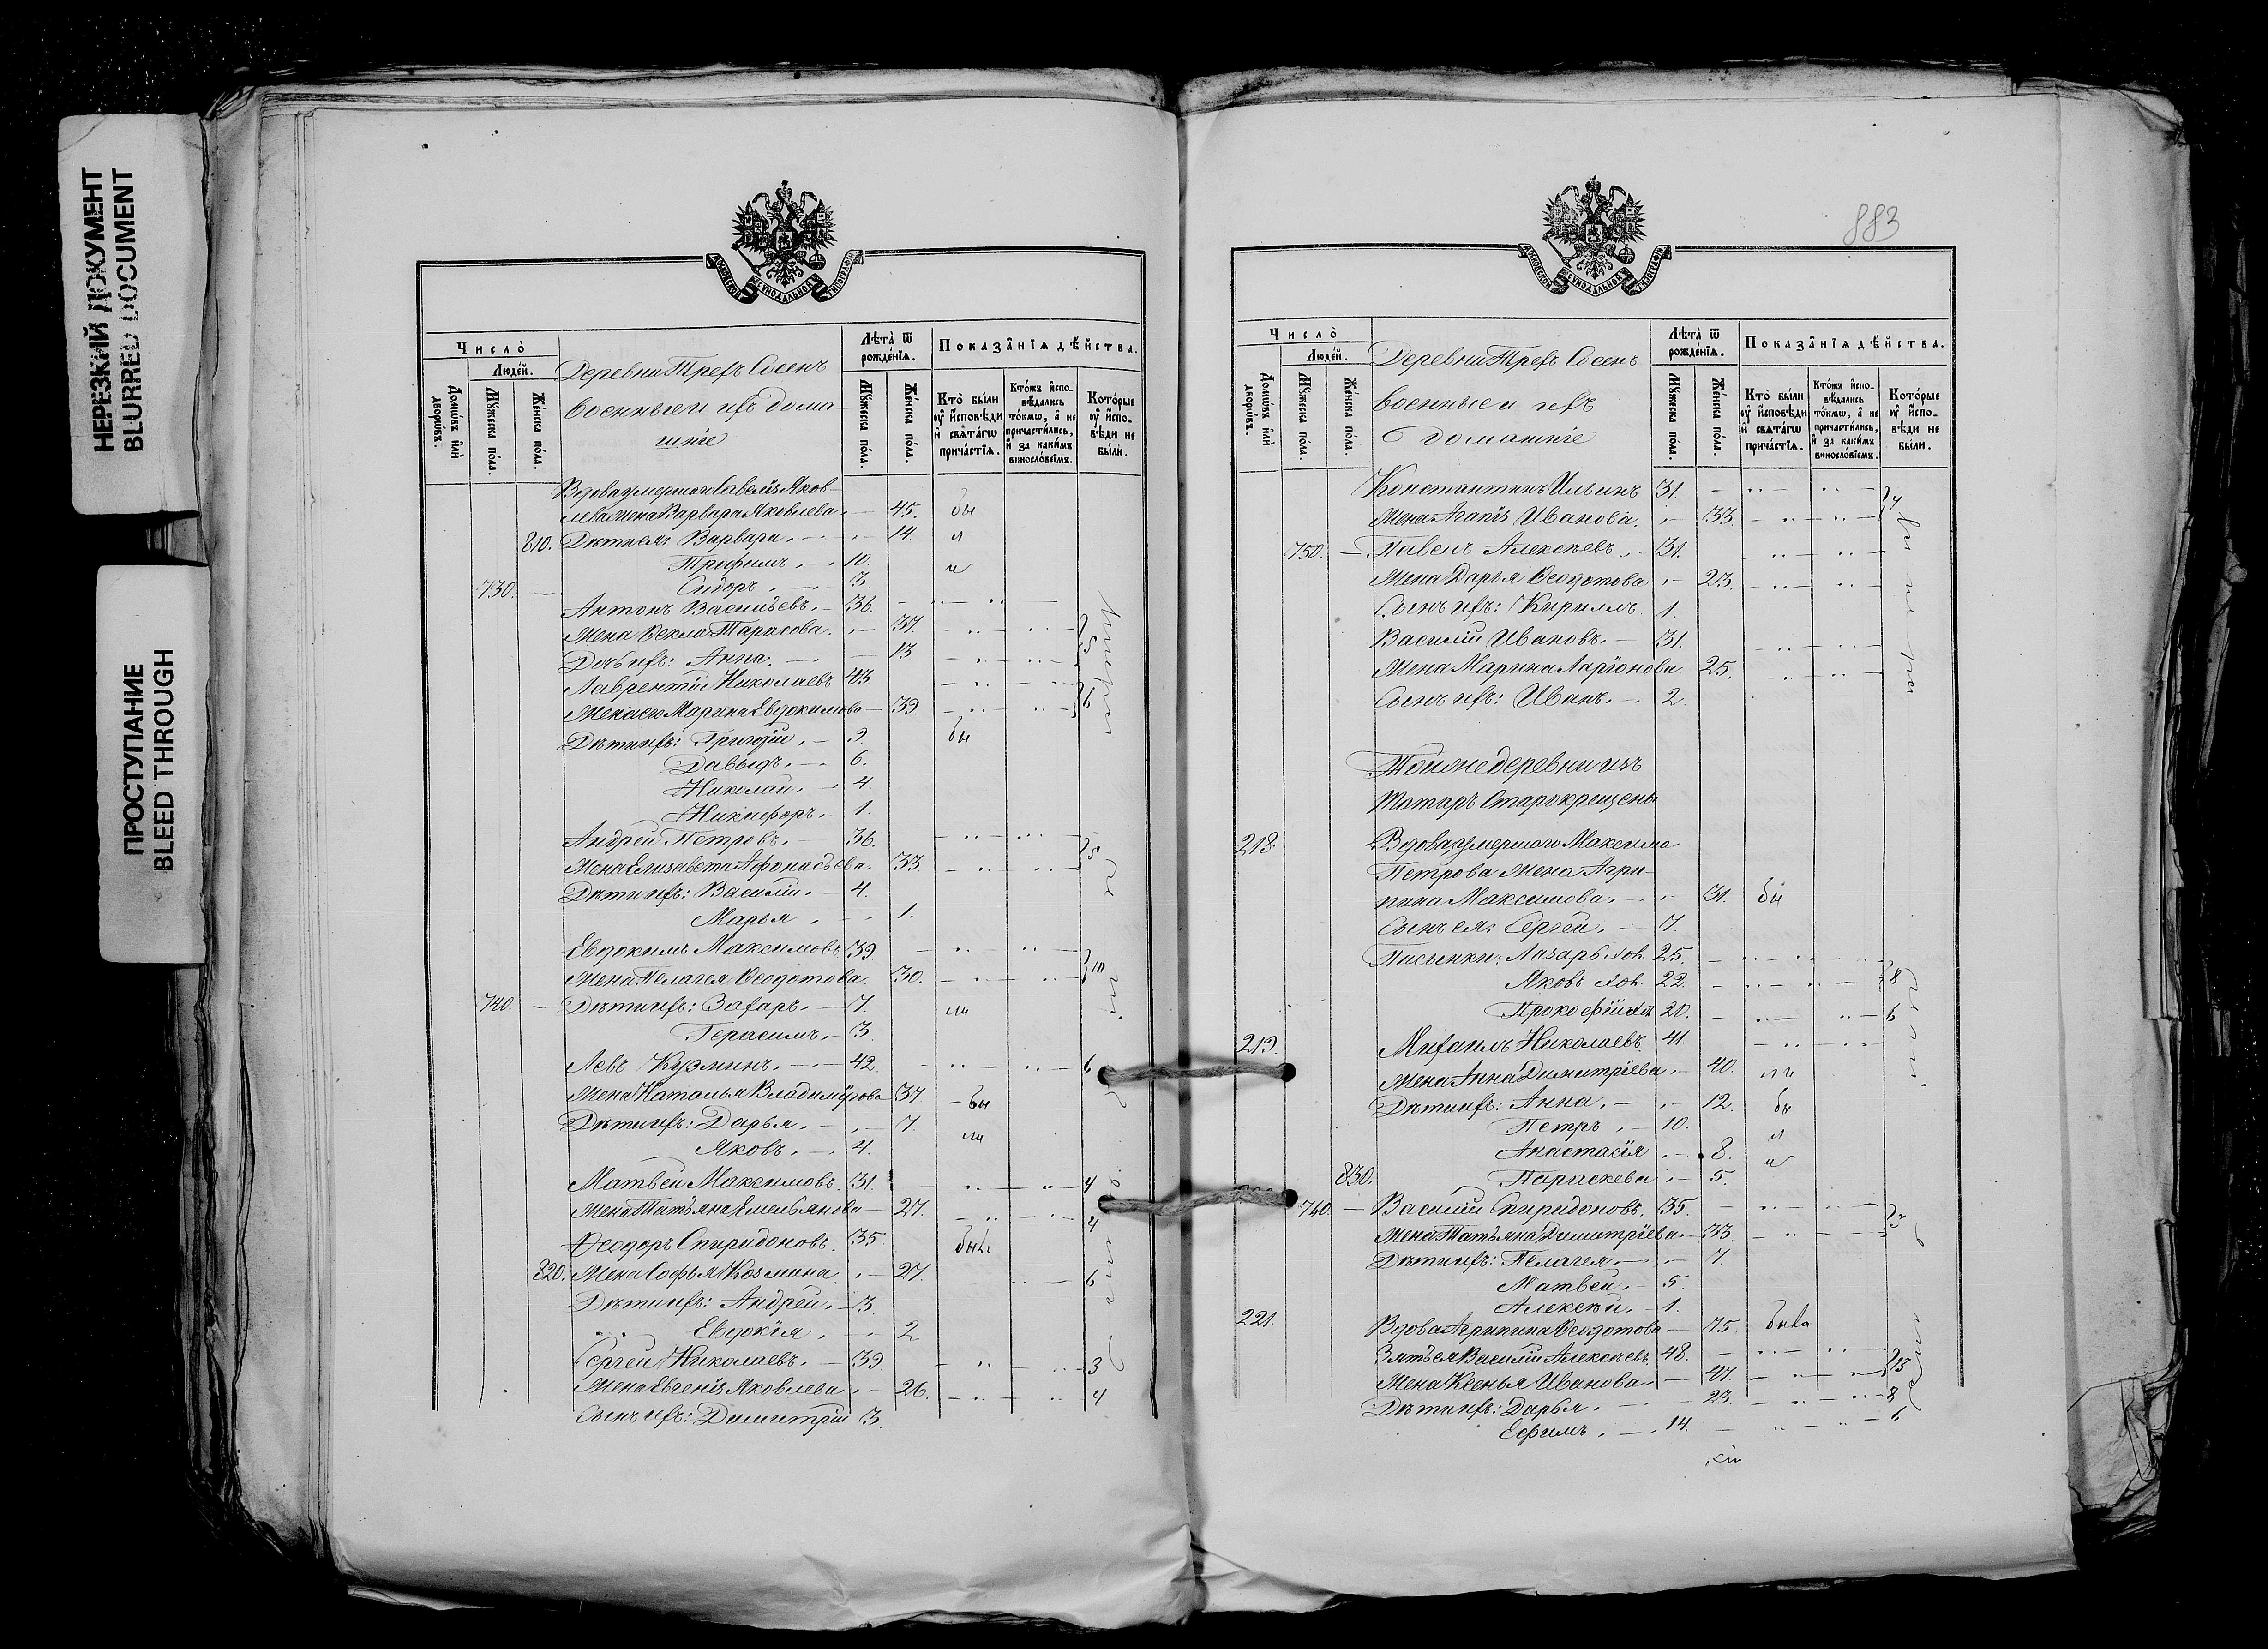 НЕРЕЗКИЙ ДОКУМЕНТ
BLURRED DOCUMENT
ПРОСТУПАНИЕ
BLEED THROUGH
Число̀
Людей.
Домѡвъ и҆лѝ дворѡвъ.
Мꙋжеска пола.
Женска пола.
Деревни Трехъ Сосенъ
военные и ихъ дома-
шніе
Лѣта̀ ѿ рожденїѧ.
Мꙋжеска пола.
Женска пола.
Показа̂нїѧ дѣйства.
Кто̀ были ᲂу҆ и҆сповѣди и҆ свѧта́гѡ прича́стїѧ.
Кто́жъ и҆сповѣдались то́кмѡ, а҆ не причастились, и҆ за какимъ винословїемъ.
Кото́рые ᲂу҆ и҆сповѣди не были.
Вдова умершаго Савелія Яков-
лева жена Варвара Яковлева 45. бы
810. Дѣти ея: Варвара 14. л
Трофимъ 10. и
730. Сидоръ 3.
Антонъ Васильевъ 36.
Жена Ѳекла Тарасова 37. 3
Дочь ихъ: Анна 13
Лаврентій Николаевъ 43
Жена его Марина Евдокимова 39 6
Дѣти ихъ: Григорій 9. бы
Давыдъ 6.
Николай 4.
Никифоръ 1.
Андрей Петровъ 36. 5
Жена Елизавета Афонасьева 33.
Дѣти ихъ: Василій 4.
Марья 1.
Евдокимъ Максимовъ 39.
Жена Пелагея Ѳеодотова 30. 10
740. Дѣти ихъ: Захаръ 7. ли
Герасимъ 3.
Левъ Кузминъ 42. 6
Жена Наталья Владимірова 37 бы
Дѣти ихъ: Дарья 7. ли
Яковъ 4.
Матвей Максимовъ 31. 4
Жена Татьяна Емельянова 27. 4
Ѳеодоръ Спиридоновъ 35. былъ
820. Жена Софья Козмина 27. 6
Дѣти ихъ: Андрей 3.
Евдокія 2
Сергей Николаевъ 39 3
Жена Евгенія Яковлева 26. 4
Сынъ ихъ: Димитрій 3.
883
Число̀
Людей.
Домѡвъ и҆лѝ дворѡвъ.
Мꙋжеска пола.
Женска пола.
Деревни Трехъ Сосенъ
военные и ихъ
домашніе
Лѣта̀ ѿ рожденїѧ.
Мꙋжеска пола.
Женска пола.
Показа̂нїѧ дѣйства.
Кто̀ были ᲂу҆ и҆сповѣди и҆ свѧта́гѡ прича́стїѧ.
Кто́жъ и҆сповѣдались то́кмѡ, а҆ не причастились, и҆ за какимъ винословїемъ.
Кото́рые ᲂу҆ и҆сповѣди не были.
Константинъ Ильинъ 31.
Жена Агапія Иванова 33.
750. Павелъ Алексѣевъ 31.
Жена Дарья Ѳеодотова 23.
Сынъ ихъ: Кириллъ 1.
Василій Ивановъ 31.
Жена Марина Ларіонова 25.
Сынъ ихъ: Иванъ 2.
Той же деревни изъ
татаръ старокрещены
218. Вдова умершаго Максима
Петрова жена Агри-
пина Максимова 31. бы
Сынъ ея: Сергей 7.
Пасынки: Лазарь 25.
Яковъ 22. 8
Прокофій 20. 6
219. Михаилъ Николаевъ 41.
Жена Анна Димитріева 40.
Дѣти ихъ: Анна 12. бы
Петръ 10. л
Анастасія 8. и
830. Параскева 5.
760 Василій Спиридоновъ 35.
Жена Татьяна Димитріева 33.
Дѣти ихъ: Пелагея 7.
Матвей 5.
Алексѣй 1.
221. Вдова Агрипина Ѳеодотова 75. была
Зять ея Василій Алексѣевъ 48. 13
Жена Ксенья Иванова 47.
Дѣти ихъ: Дарья 23. 8
Ефимъ 14. 6